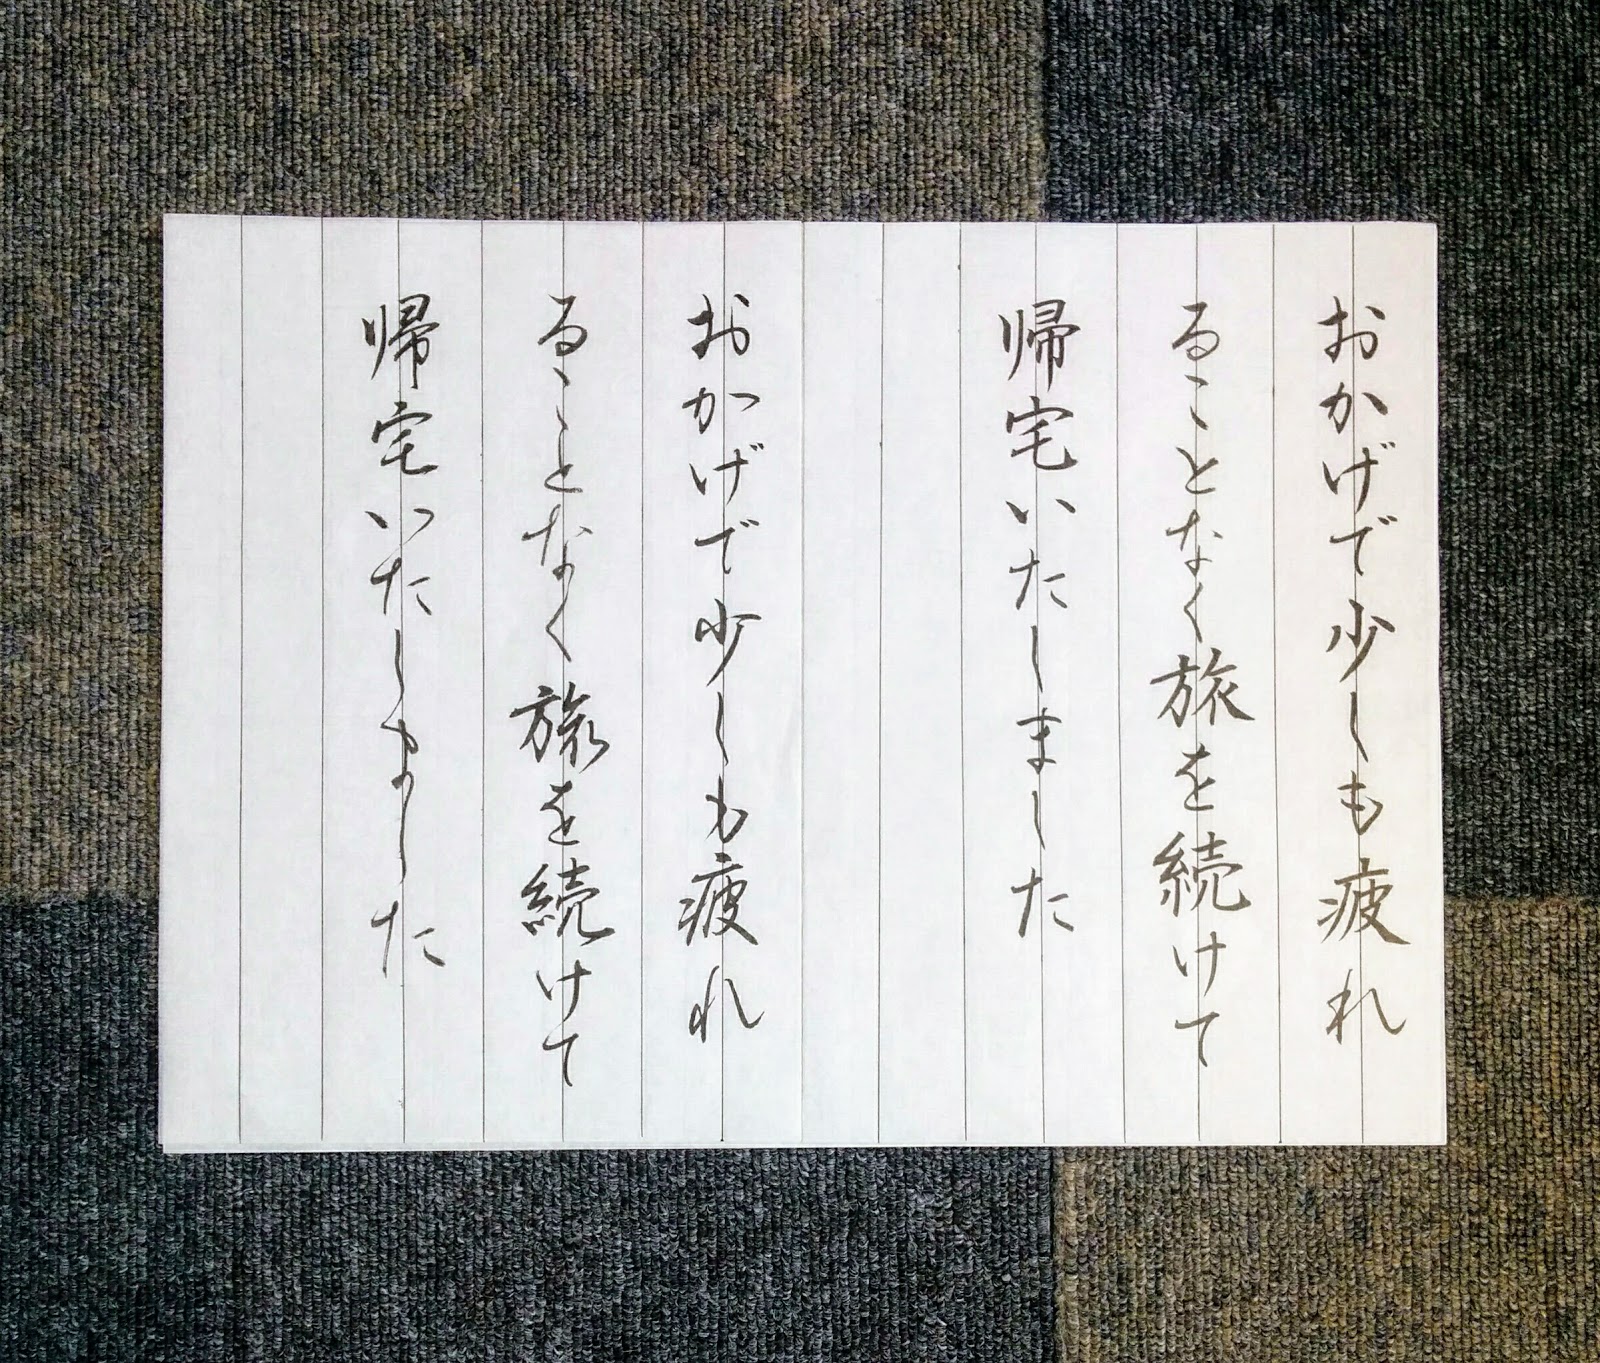 おかげで少しも疲れ
ることなく旅を続けて
帰宅いたしました
おかげで少しも疲れ
ることなく旅を続けて
帰宅いたしました